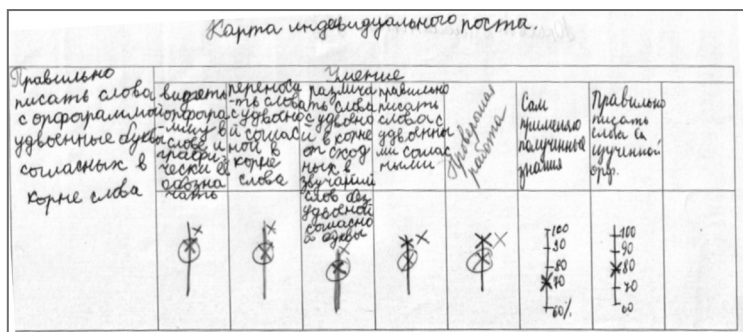 Карта индивидуального роста.
Умение
Правильно
писать слова
с орфограммой
удвоенные буквы
согласных в
корне слова
видеть
орфограм-
мму в
слове и
графи-
чески её
обозна-
чать
переноси
-ть слова
с удвоено
й соглас
ной в
корне
слова
различа
ть слова
с удвоено
й в корне
от сход
ных в
звучании
слов без
удвоенной
согласно
й буквы
правильно
писать
слова с
удвоенны
ми соглас
ными
Проверочная
работа
Сам
применяю
полученные
знания
Правильно
писать
слова
изученной
орф.
100
90
80
70
60%
100
90
80
70
60